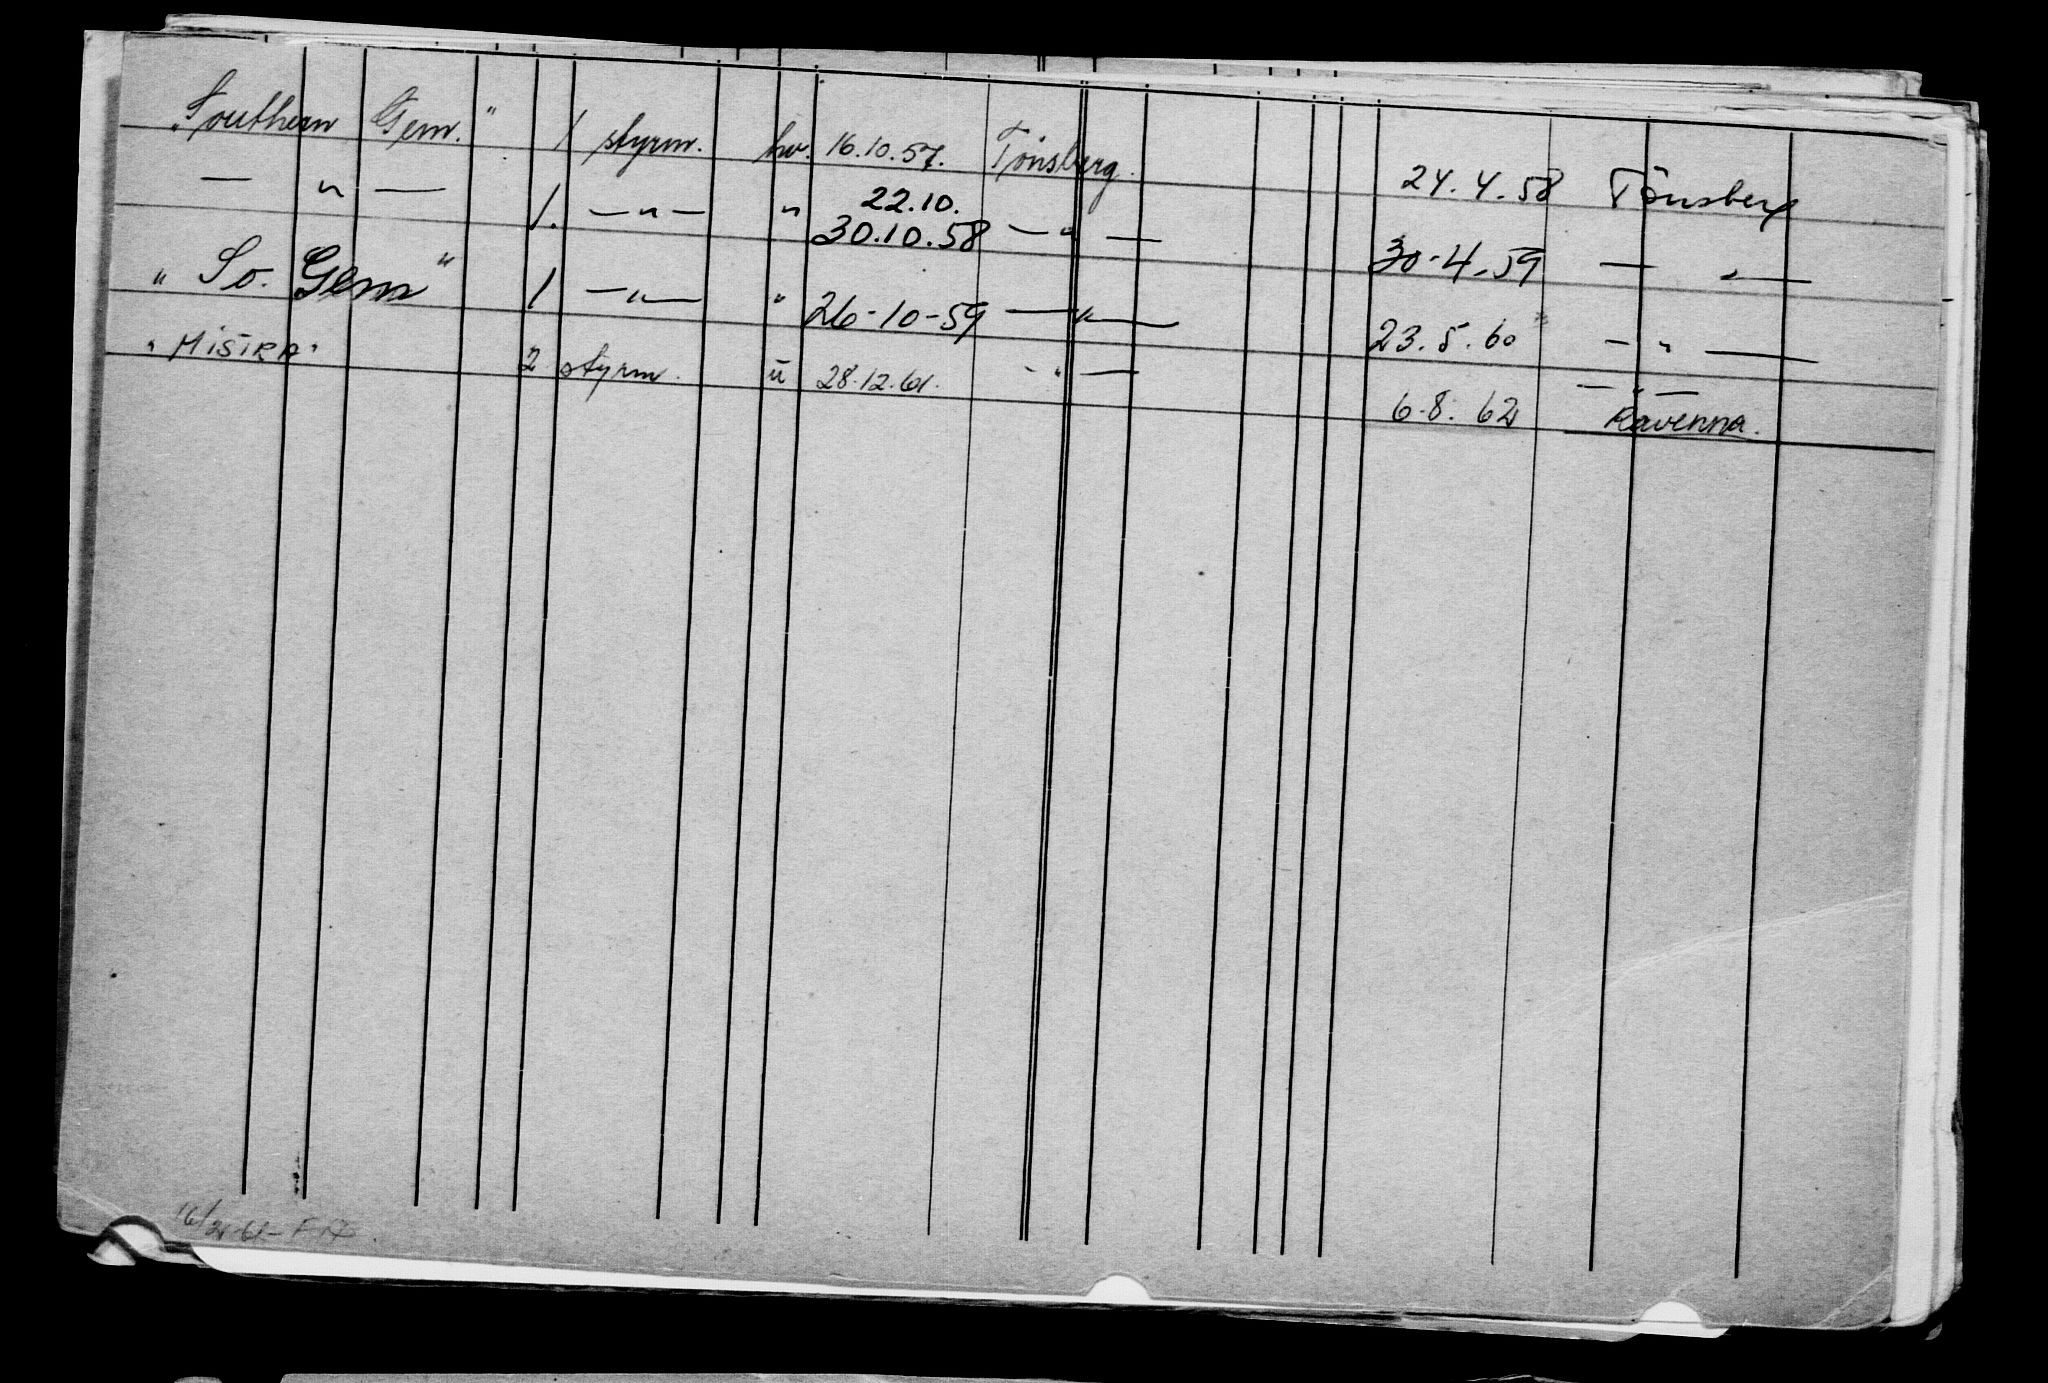 „Southern Gem." 1 styrm. hv. 16.10.57. Tönsberg. 24.4.58 Tönsberg
— " — 1. — " — " 22.10. 30.10.58 — " — 30-4-59 — " —
" So. Gem" 1 — " — " 26-10-59 — " — 23.5.60 — " —
"MISTRA" 2 styrm. u 28.12.61. - " — 6-8. 62 — " — Ravenna.